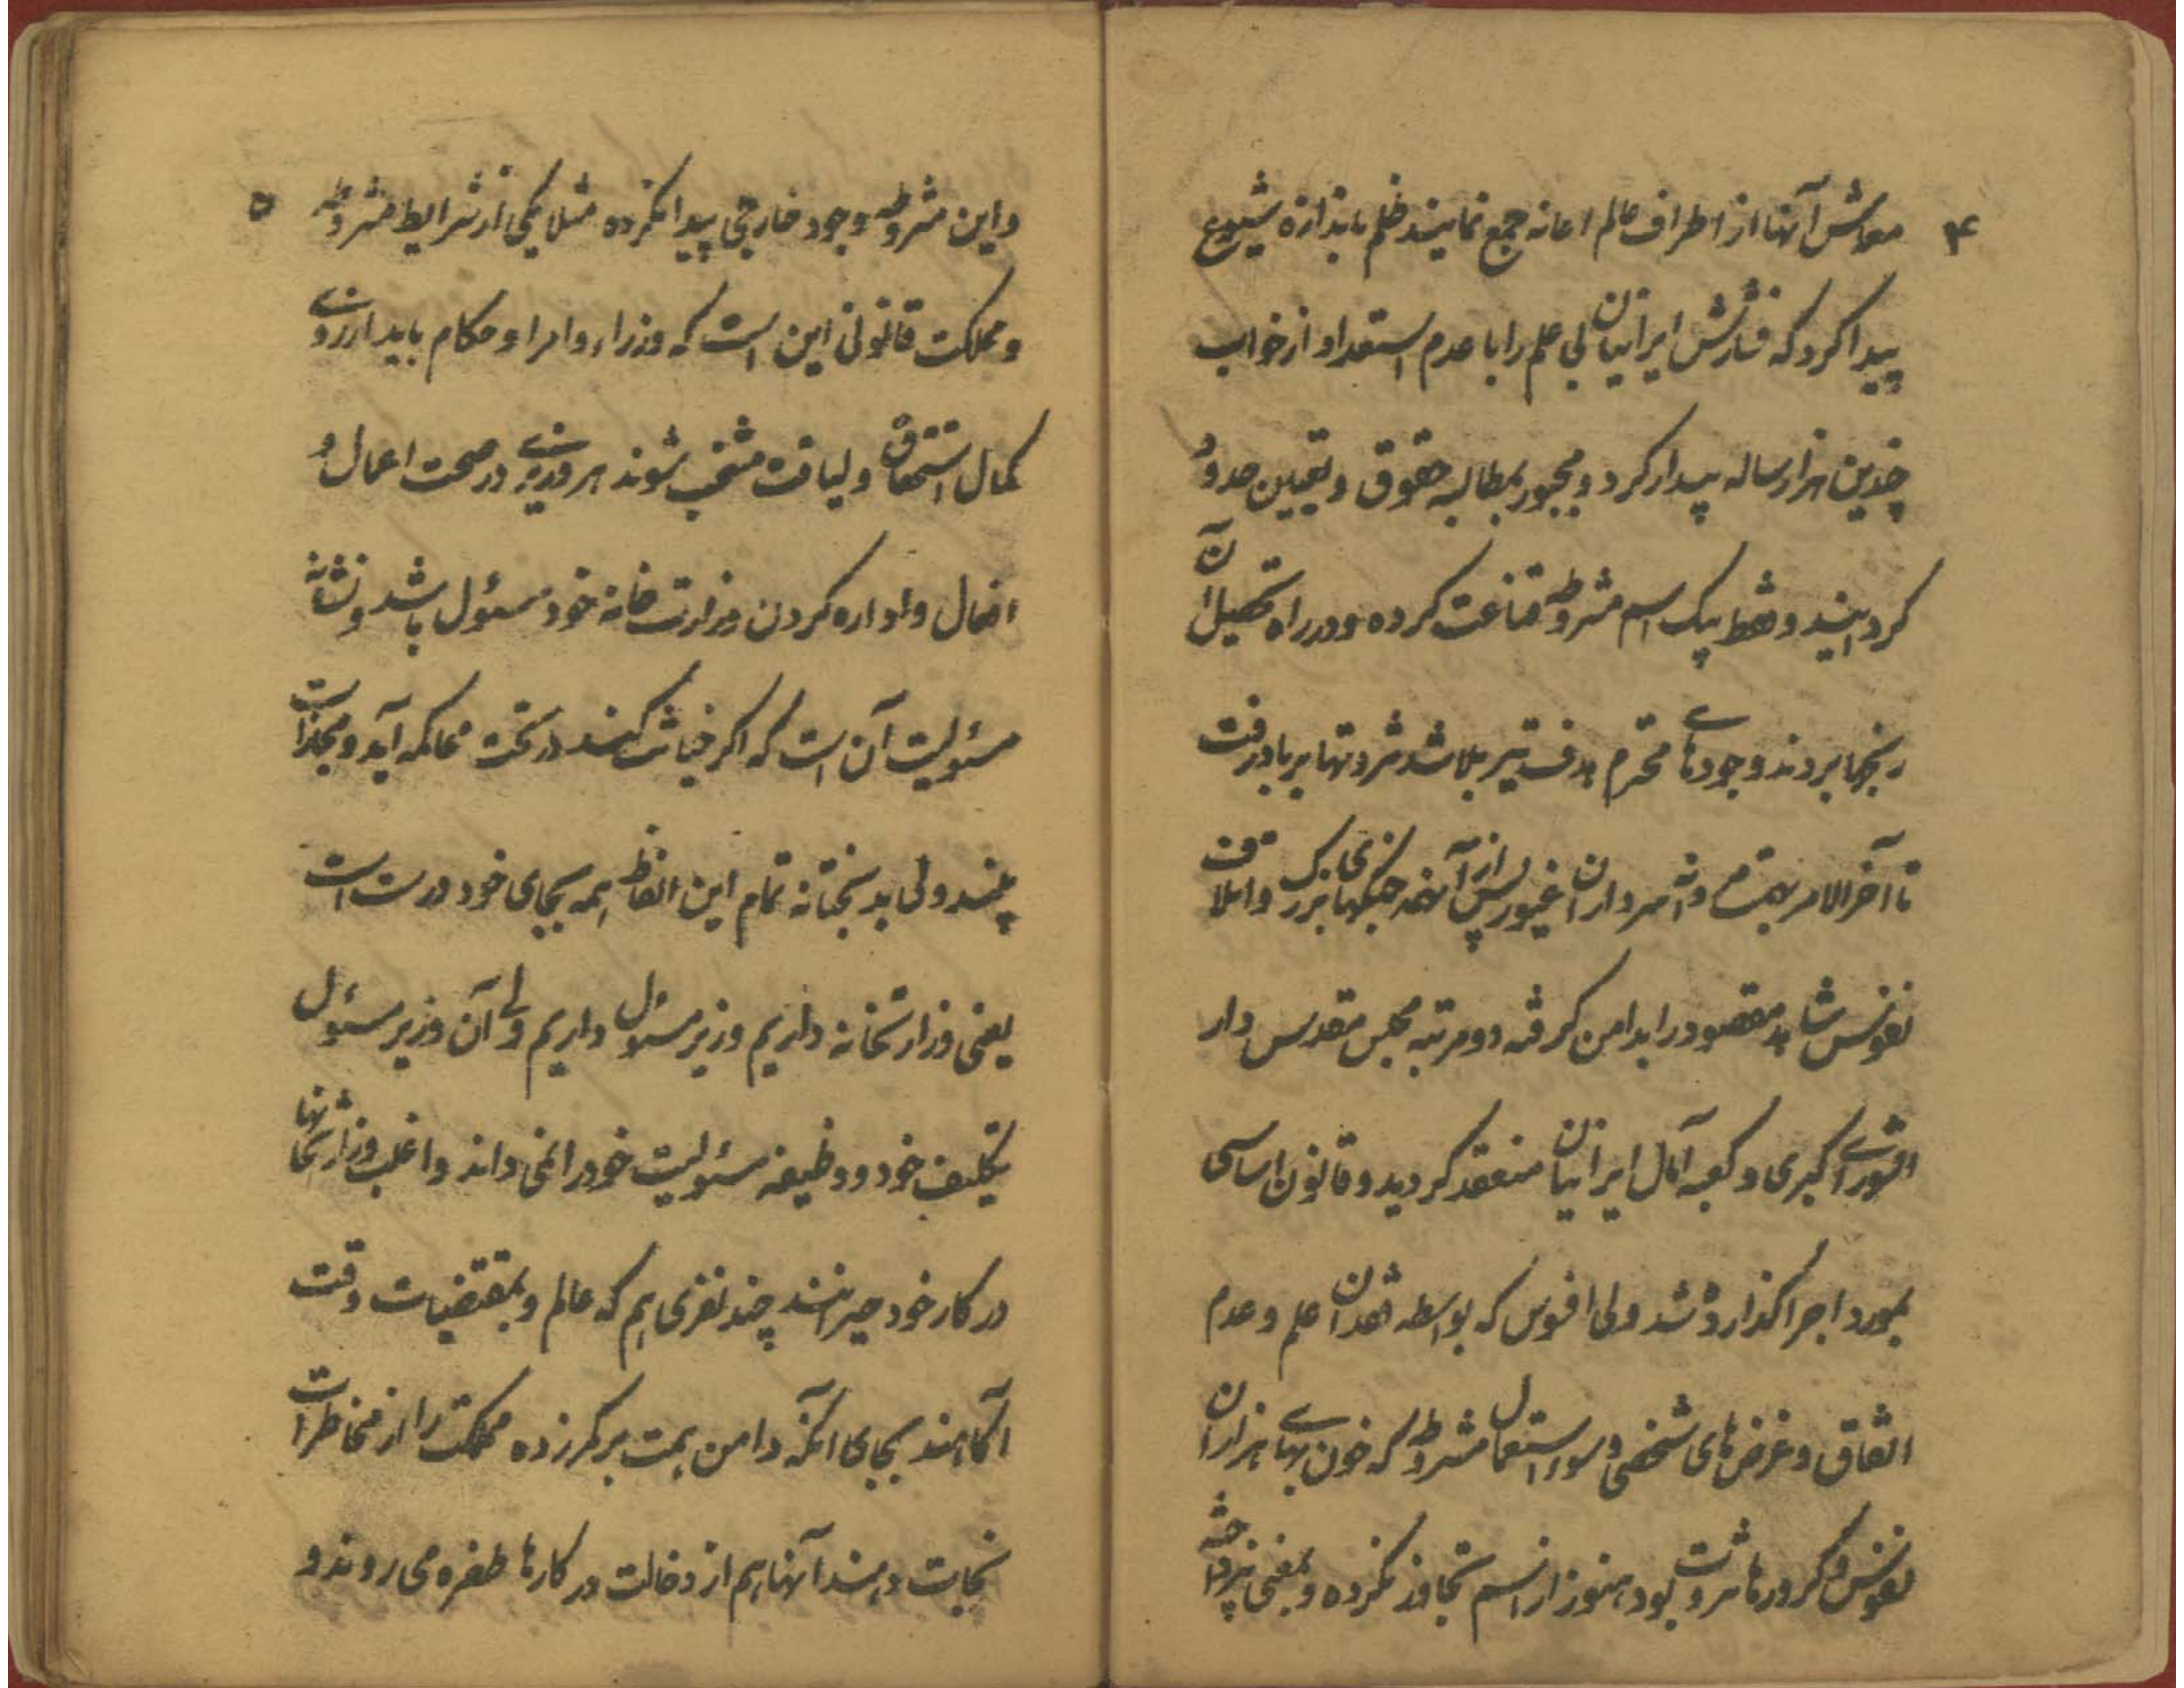 ۴
معاش آنها از اطراف عالم اعانه جمع نمایند ظلم باندازه شیوع
پیدا کرد که فشارش ایرانیان بی علم را با عدم استعداد از خواب
چندین هزار ساله بیدار کرد و مجبور بمطالبه حقوق و تعیین حدود
کردانید و فقط بیک اسم مشروطه قناعت کرده و در راه تحصیل آن
رنجها بردند وجودهای محترم هدف تیر بلا شد ثروتها بر باد رفت
تا آخر الامر بهمت سرداران غیور پس از آنهمه جنکهای بزرک و اتلاف
نفوس شاهد مقصود را بدامن کرفته دو مرتبه مجلس مقدس دار
الشورای کبری و کعبه آمال ایرانیان منعقد کردید و قانون اساسی
بمورد اجرا کذارده شد ولی افسوس که بواسطه فقدان علم و عدم
اتفاق و غرض‌های شخصی و سوء استعمال مشروطه که خون بهای هزاران
نفوس و کرورها ثروت بود هنوز از اسم تجاوز نکرده و بمعنی نپرداخته
۵
و این مشروطه وجود خارجی پیدا نکرده مثلا یکی از شرایط مشروطه
و مملکت قانونی این است که وزراء و امرا و حکام باید از روی
کمال استحقاق و لیاقت منتخب شوند هر وزیری در صحت اعمال و
افعال و اداره کردن وزارت خانه خود مسئول باشد و نشانه
مسئولیت آن است که اکر خیانت کنند در تحت محاکمه آید و مجازات
بیند ولی بدبختانه تمام این الفاظ همه بجای خود درست است
یعنی وزارتخانه داریم وزیر مسئول داریم ولی آن وزیر مسئول
تکلیف خود و وظیفه مسئولیت خود را نمی داند و اغلب وزارتخانها
در کار خود حیرانند چند نفری هم که عالم و بمقتضیات وقت
آکاهند بجای آنکه دامن همت بر کمر زده مملکت را از مخاطرات
نجات دهند آنها هم از دخالت در کارها طفره می روند و